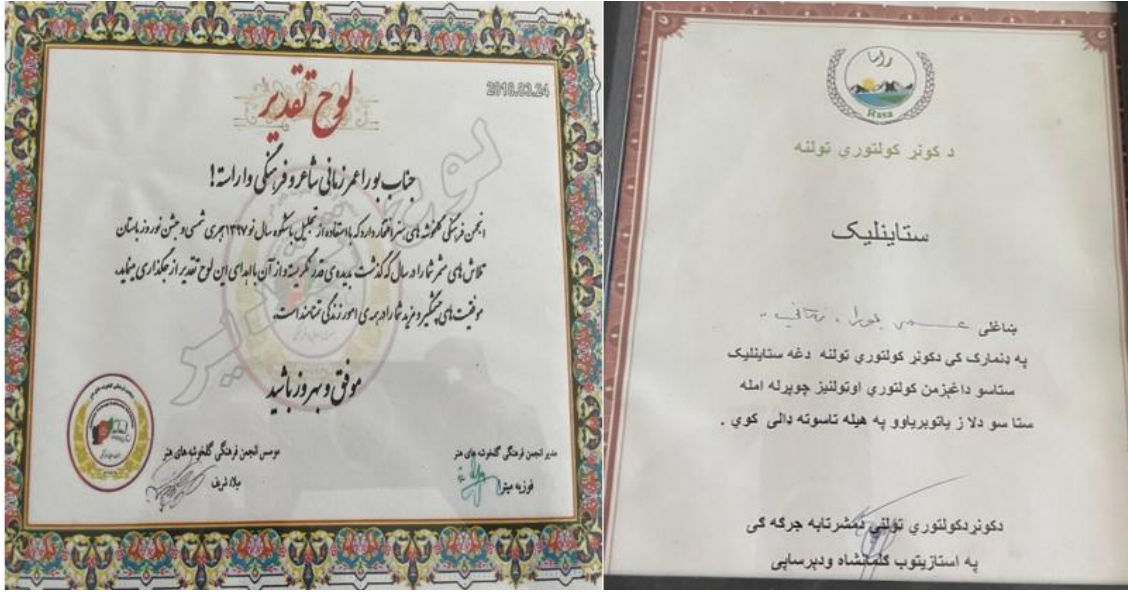 2018.03.24
لوح تقدیر
جناب بورا عمر زمانی شاعر و فرهنگی وارسته!
انجمن فرهنگی گلخوشه های هنر افتخار دارد که با استفاده از تجلیل باشکوه سال نو ۱۳۹۷ هجری شمسی و جشن نوروز باستان
تلاش های مثمر شما را در سال که گذشت بدیده ی قدر نگریسته و از آن با اهدای این لوح تقدیر ارجگذاری مینماید.
موفقیت های چشمگیر و مزید شما را در همه ی امور زندگی تمنامند است.
موفق و بهروز باشید
مدیر انجمن فرهنگی گلخوشه های هنر
فوزیه میترا
موسس انجمن فرهنگی گلخوشه های هنر
میلاد شریف
Rasa
د کونړ کولتوري ټولنه
ستاینلیک
ښاغلی عمر بورا زماني
په ډنمارک کی دکونړ کولتوري ټولنه دغه ستاینلیک
ستاسو داغېزمن کولتوري اوټولنیز چوپړله امله
ستا سو دلا ز یاتوبریاوو په هیله تاسوته ډالی کوي .
دکونړدکولتوري ټولنې دمشرتابه جرګه کی
په استازیتوب ګلمانشاه ودیرساپی